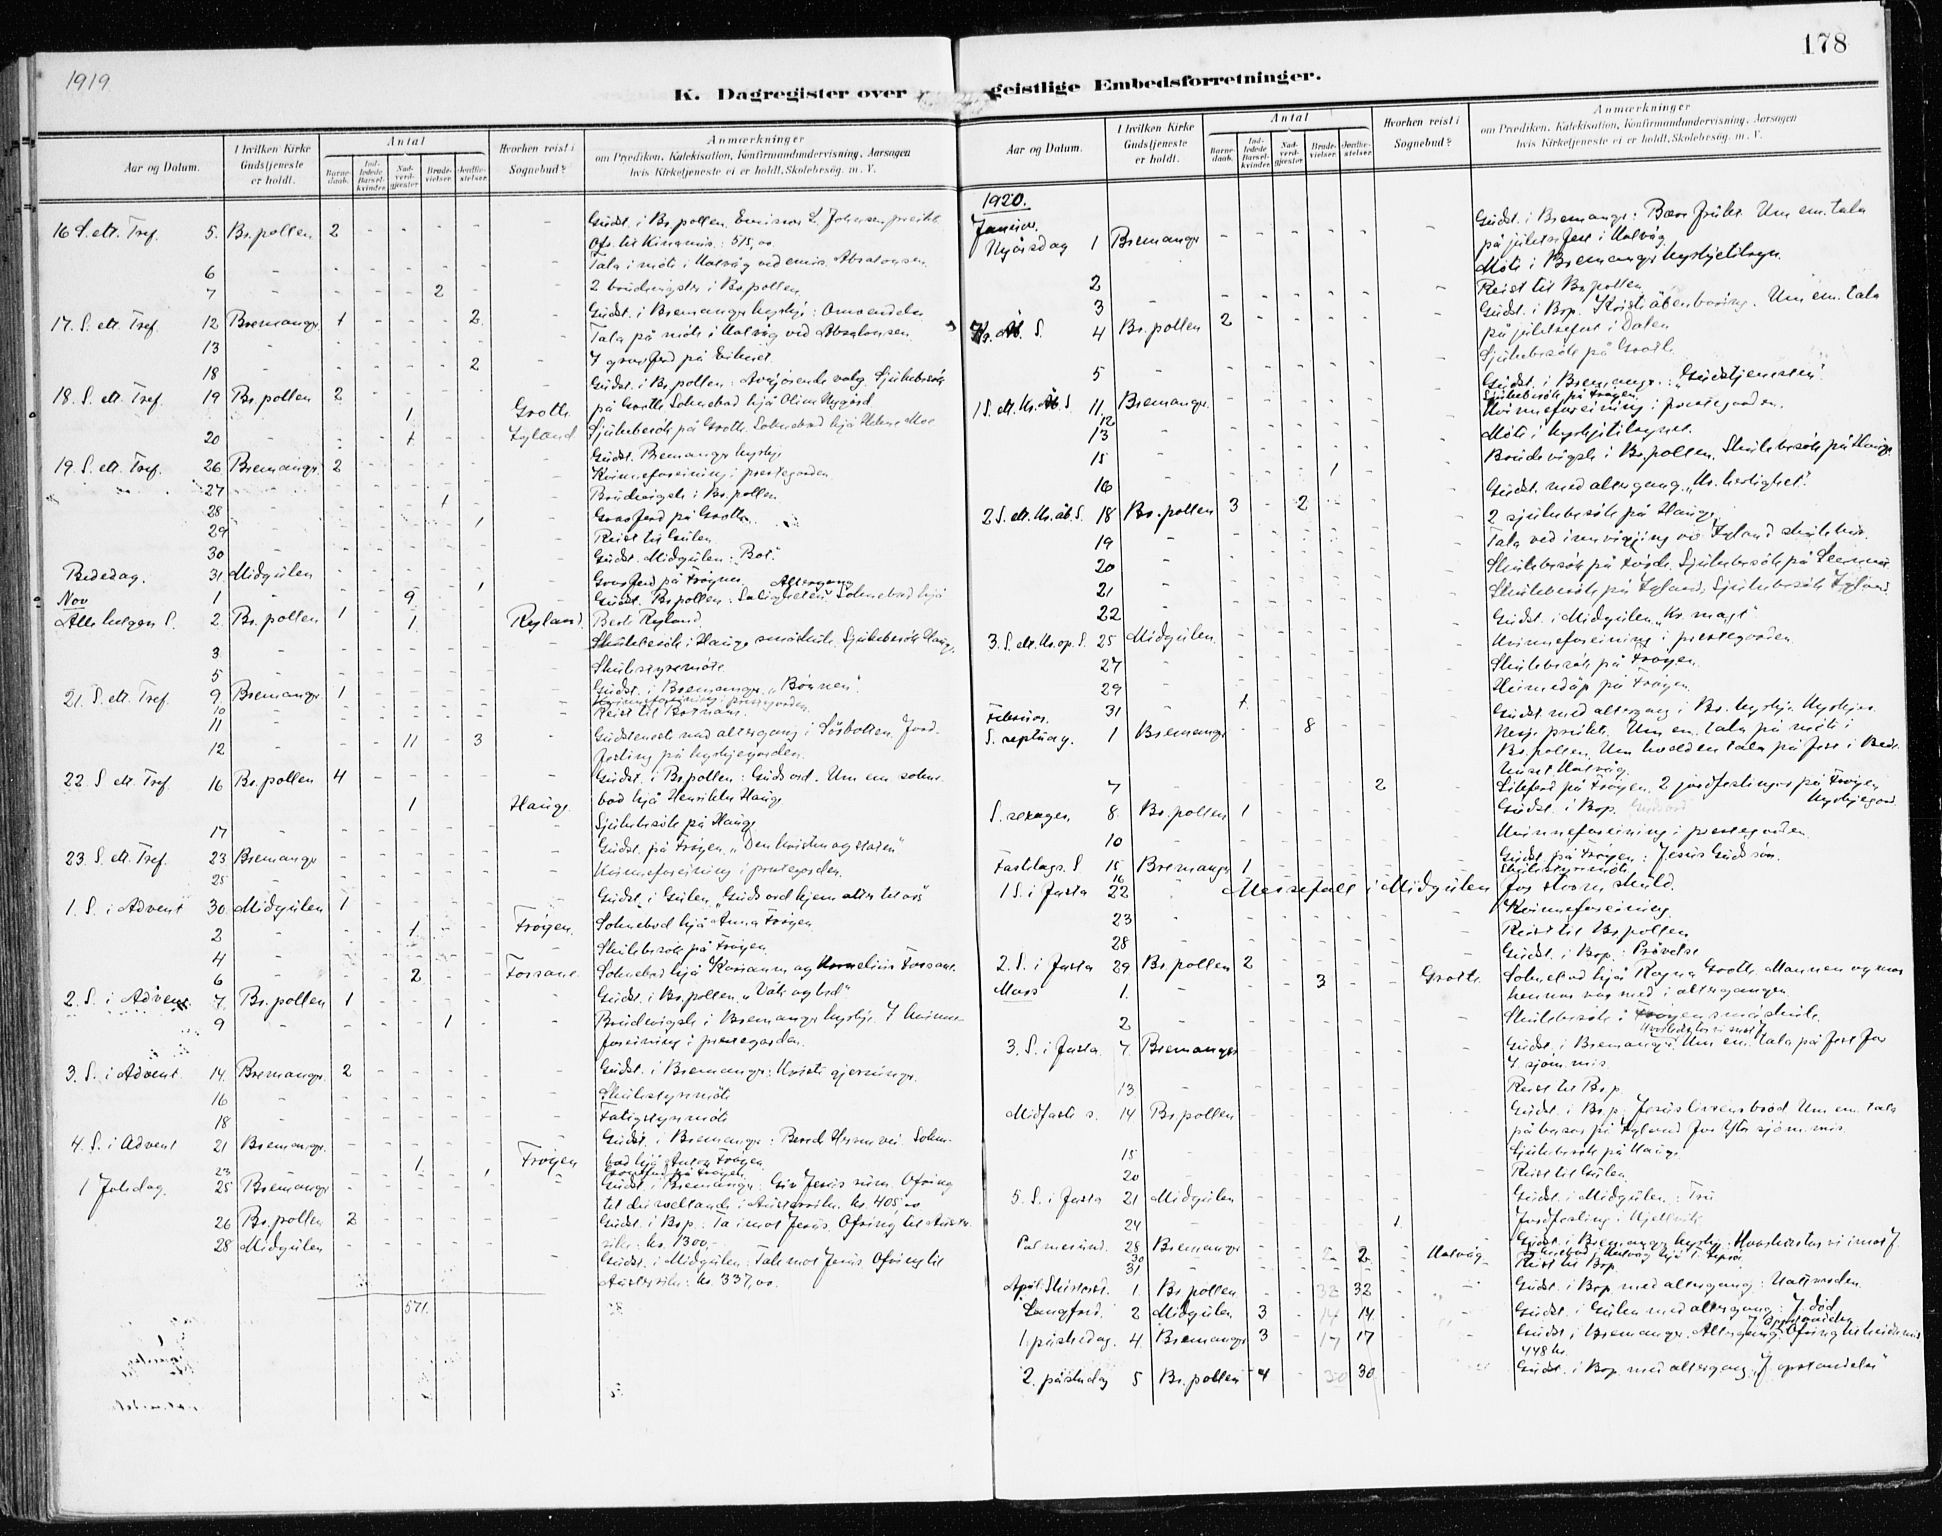 1919
178
K. Dagregister over geistlige Embedsforretninger.
Aar og Datum.
I hvilken Kirke Gudstjeneste er holdt.
Antal
Barnedaab.
Indledede Barselkvinder.
Nadverdgjester.
Brudevielser.
Jordfæstelser.
Hvorhen reist i Sognebud?
Anmærkninger
om Prædiken, Katekisation, Konfirmandundervisning, Aarsagen
hvis Kirketjeneste ei er holdt, Skolebesøg. m. V.
16 S. ett. Tref. 5. Br.pollen 2 Gudst. i Br.pollen. Emissær L. Johnsen preikte
Ofr. til Kinamis.: 515,00
6 Tala i møte i Kalvåg ved emis. Absalonsen.
7 2 2 brudevigsler i Br.pollen.
17. S. ett. Tref. 12 Bremanger 1 2 Gudst. i Bremanger kyrkje: Omvendelse
13 Tala på møte i Kalvåg ved Absalonsen
18 2
18. S. ett. Tref. 19 Br.pollen 2 Gudst. i Br.pollen: Avgjørende valg. Sjukebesøk
1 Grotle på Grotle Soknebud hjå Oline Nygård
20 1 Igland Sjukebesøk på Grotle. Soknebud hjå Helene Moe
19. S. ett. Tref. 26 Bremanger 2 Gudst. Bremanger kyrkje
27 Kvinneforeining i prestegarden
28 1 Brudevigsle i Br.pollen
29 1 Gravferd på Grotle.
30 Reist til Gulen.
Bededag. 31. Midgulen Gudst. Midgulen: "Bot."
Nov 1 9 1 Gravferd på Frøyen. Altergang
Alle helgen S. 2. Br.pollen 1 1 Ryland. Gudst. Br.pollen: Saligheten. Soknebud hjå
Berte Ryland.
3 Skulebesøk i Hauge småskule. Sjukebesøk Hauge.
5 Skulestyremøte
21. S. ett. Tref. 9 Bremanger 1 Gudst. i Bremanger. "Bønnen".
10 Kvinneforeining i prestegarden.
11 Reist til Botnane.
12 11 3 Gudstenest med altergang i Sørbotten. Jord-
festing på kyrkjegarden.
22 S. ett. Tref. 16 Br.pollen 4 Gudst. i Br.pollen: Guds ord. Um em. sokne-
1 Hauge. bud hjå Henrikke Hauge
17 Sjukebesøk på Hauge
23. S. ett. Tref. 23 Bremanger Gudst. på Frøyen "Den kristne og staten"
25 Kvinneforeining i prestegarden.
1. S. i Advent 30 Midgulen 1 Gudst. i Gulen "Guds ord hjem atter til os"
2 1 Frøyen. Soknebud hjå Anna Frøyen.
4 Skulebesøk på Frøyen.
6 2 Fossane. Soknebud hjå Rasianna og Kornelius Fossane.
2. S. i Advent. 7. Br.pollen 1 Gudst. i Br.pollen "Våk og bed"
9 1 Brudevigsle i Bremanger kyrkje. I kvinne-
foreining i prestegarden.
3. S. i Advent 14. Bremanger 2 Gudst. i Bremanger: Kristi gjerninger.
16 Skulestyremøte
18 Fatigstyremøte
4. S. i Advent 21 Bremanger. Gudst. i Bremanger: Bered Herrens vei. Sokne-
1 Frøyen bud hjå Anton Frøyen
23 1 Gravferd på Frøyen.
1 Joledag. 25 Bremanger Gudst. i Bremanger: Giv Jesus rum. Ofring
kr. 405,00
26 Br.pollen 2 Gudst. i Brp.: Ta imot Jesus. Ofring til Auste-
rike: kr. 1300,-
28 Midgulen Gudst. i Midgulen: Tak mot Jesus Ofring til
Austerrike: kr. 337,00.
571.
Aar og Datum.
I hvilken Kirke Gudstjeneste er holdt.
Antal
Barnedaab.
Indledede Barselkvinder.
Nadverdgjester.
Brudevielser.
Jordfæstelser.
Hvorhen reist i Sognebud?
Anmærkninger
om Prædiken, Katekisation, Konfirmandundervisning, Aarsagen
hvis Kirketjeneste ei er holdt, Skolebesøg. m. V.
1920.
Januar.
Nyårsdag 1 Bremanger Gudst. i Bremanger: Bær frukt. Um em. tala
på juletrefest i Kalvåg.
2 Møte i Bremanger kyrkjetilsyn.
3 Reist til Br.pollen
Kr. åb. S. 4 Br.pollen 2 Gudst. i Brp. Kristi åbenbaring. Um em. tala
på juletrefest i Dalen
5 Sjukebesøk på Grotle
1 S. ett. Kr. åb. S. 11 Bremanger. Gudst. i Bremanger: "Gudstjenesten".
12 Sjukebesøk på Frøyen.
13 Kvinneforeining i prestegarden.
15 Møte i kyrkjetilsynet.
16 1 Brudevigsle i Br.pollen. Skulebesøk på Hauge
2 S. ett. Kr. åb. S. 18 Br.pollen 3 2 Gudst. med altergang. "Kr. herlighet".
19 2 sjukebesøk på Hauge
20 Tala ved innvigjing av Igland skulehus.
21 Skulebesøk på Førde. Sjukebesøk på
22 Skulebesøk på Igland, Sjukebesøk Igland.
3. S. ett. Kr. op. S. 25 Midgulen. Gudst. i Midgulen. "Kr. magt"
27 Kvinneforeining i prestegarden.
29 Skulebesøk på Frøyen.
31 1 Heimedåp på Frøyen.
Februar.
S. septuag. 1 Bremanger 8 Gudst. med altergang i Br. kyrkje. Kyrkjes.
Nesje preikte. Um em. tala på møte i
Br.pollen. Um kvelden tala på fest i Bede-
huset Kalvåg.
7 2 Likferd på Frøyen. 2 jordfestingar på Frøyen
kyrkjegard.
S. sexages. 8. Br.pollen 1 Gudst. i Brp. Guds ord
10 Kvinneforeining i prestegarden.
Fastelags. S. 15 Bremanger 1 Gudst. på Frøyen: Jesus Guds søn.
16 Skulestyremøte
1 S. i Fasta 22 Messefall i Midgulen for storm skuld.
23 Kvinneforeining.
28 Reist til Br.pollen
2. S. i Fasta 29 Br.pollen 2 Gudst. i Brp: Prøvelse
Mars 1. 3 Grotle Soknebud hjå Ragna Grotle. Mannen og mor
hennar var med i altergangen
2 Skulebesøk i Frøyen småskule.
3. S. i Fasta 7. Bremanger Gudst. i Bremanger. Um em. tala på fest for
I sjøm. mis.
13 Reist til Brp.
Midfaste s. 14 Br.pollen Gudst. i Br.p: Jesus livsens brød. Um em. tala
på basar på Igland for Ytr sjøm. mis.
15 Sjukebesøk på Hauge
20 Reist til Gulen
5. S. i Fasta 21 Midgulen Gudst. i Midgulen: Tru
24 1. Jordfesting i Kjelkvik
Palmesund. 28 Bremanger Gudst. i Bremanger kyrkje: Hvorledes tar vi imot J.
30 2 2 Kalvåg Soknebud i Kalvåg hjå T.
31 Reist til Brp.
April. Skirtorsd. 1. Br.pollen 32 32 Gudst. i Brp med altergang: Nattverden.
Langfred. 2 Midgulen 3 14 14 Gudst. i Gulen med altergang: J. død
1 påskedag. 4 Bremanger 3 17 17 Gudst. i Bremanger. Altergang. J. Oppstandelse Ofring til heidn.mis
448 kr.
2. påskedag 5 Br.pollen 4 30 30 Gudst. i Brp med altergang. "J. opstandelse"